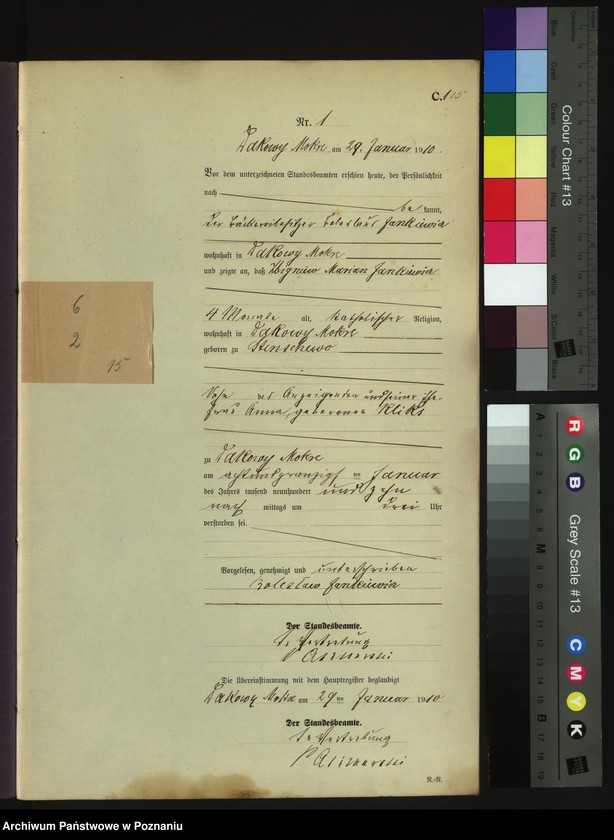 C.
115
Nr. 1
Żakowy Mokre am 29. Januar 1910.
Vor dem unterzeichneten Standesbeamten erschien heute, der Persönlichkeit
nach be kannt,
der Bäckereibesitzer Boleslaus Jankiewicz
wohnhaft in Żakowy Mokre
und zeigte an, daß Zbigniew Marian Jankiewicz
4 Monate alt, katholischer Religion,
wohnhaft in Żakowy Mokre
geboren zu Stenschewo
Sohn des Anzeigenden und seiner Ehe-
frau Anna, geborenen Kliks
zu Żakowy Mokre
am achtundzwanzigsten Januar
des Jahres tausend neunhundert und zehn
nach mittags um drei Uhr
verstorben sei.
Vorgelesen, genehmigt und unterschrieben
Bolesław Jankiewicz
Der Standesbeamte.
In Vertretung
Die Übereinstimmung mit dem Hauptregister beglaubigt
Żakowy Mokre am 29ten Januar 1910
Der Standesbeamte.
In Vertretung
N.-N.
6
2
15
Colour Chart #13
Blue
Cyan
Green
Yellow
Red
Magenta
White
3/Color
Black
Centimetres
R G B
Grey Scale #13
C M Y K
A 1 2 3 4 5 6 M 8 9 10 11 12 13 14 15 B 17 18 19
Archiwum Państwowe w Poznaniu